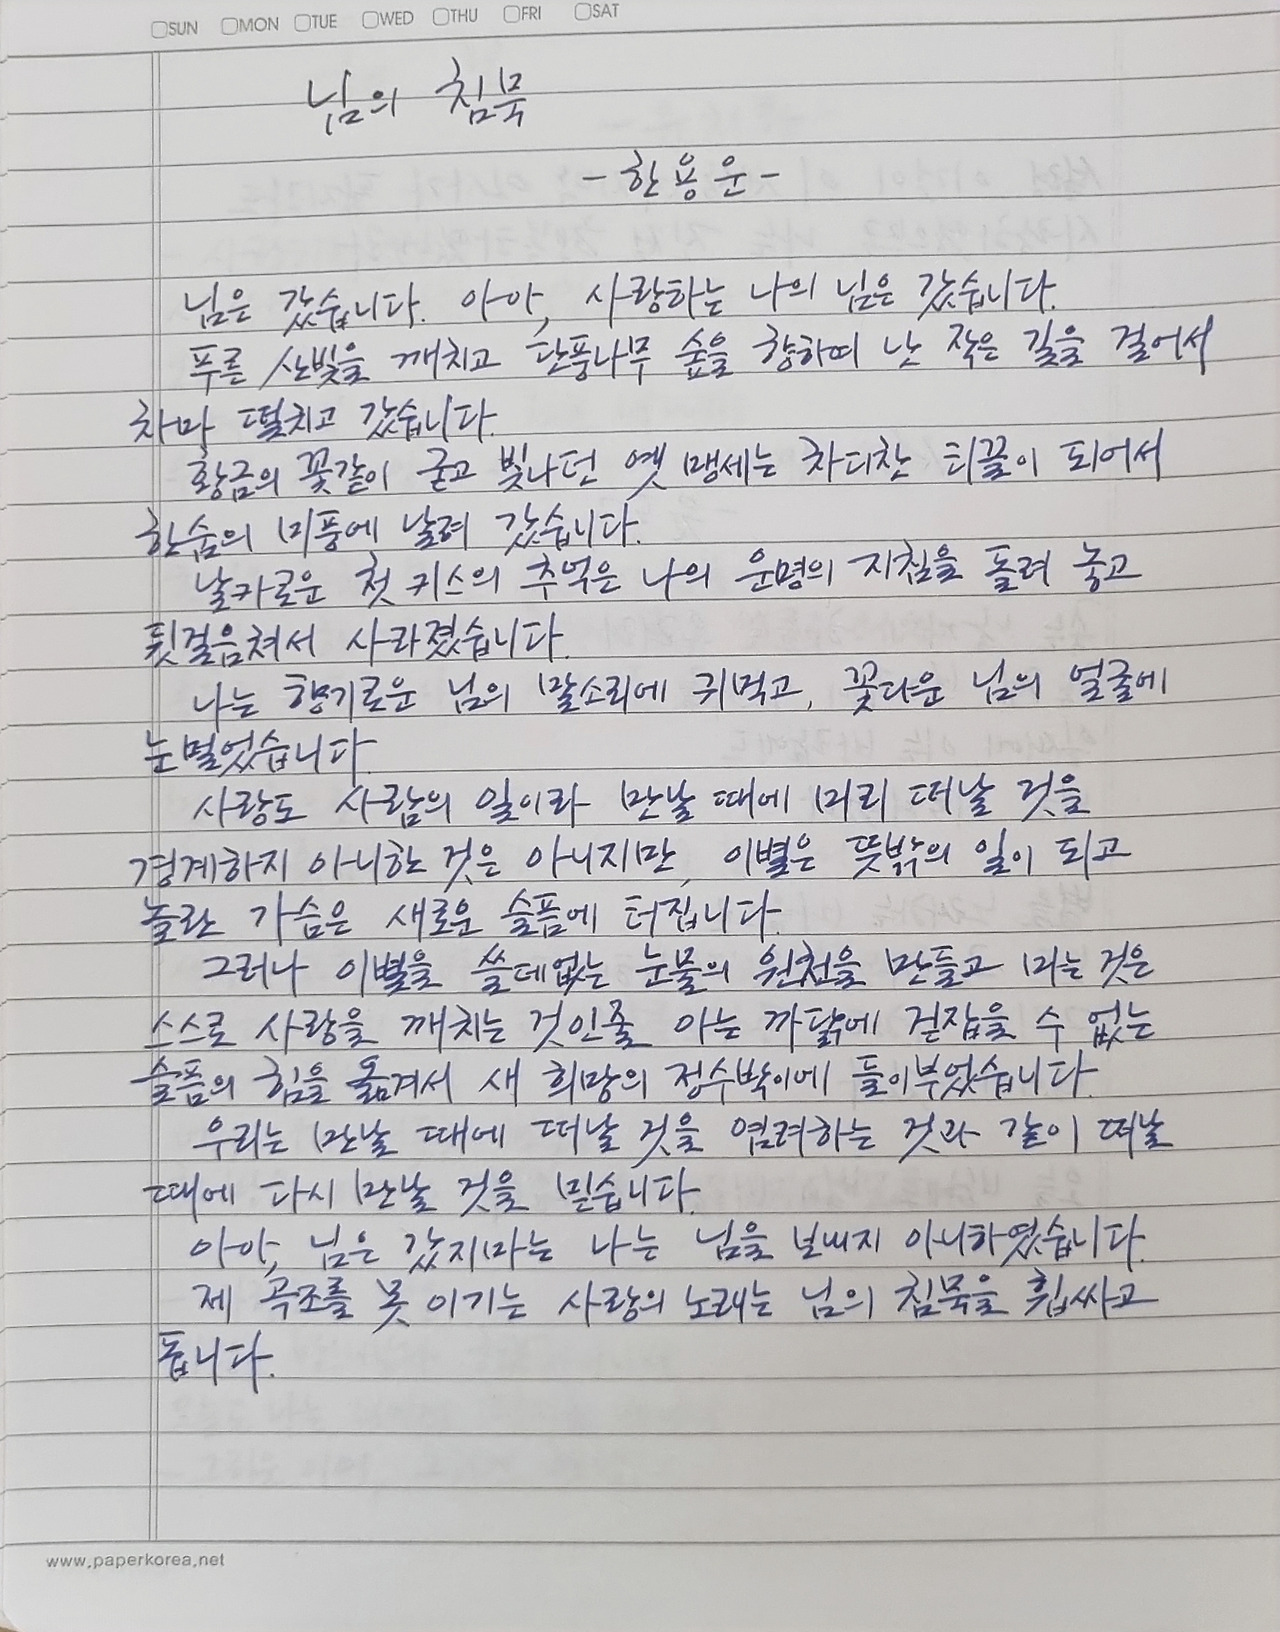 SUN MON TUE WED THU FRI SAT
님의 침묵
- 한용운 -
님은 갔습니다. 아아, 사랑하는 나의 님은 갔습니다.
푸른 산빛을 깨치고 단풍나무 숲을 향하여 난 작은 길을 걸어서
차마 떨치고 갔습니다.
황금의 꽃같이 굳고 빛나던 옛 맹세는 차디찬 티끌이 되어서
한숨의 미풍에 날려 갔습니다.
날카로운 첫 키스의 추억은 나의 운명의 지침을 돌려 놓고
뒷걸음쳐서 사라졌습니다.
나는 향기로운 님의 말소리에 귀먹고, 꽃다운 님의 얼굴에
눈멀었습니다.
사랑도 사람의 일이라 만날 때에 미리 떠날 것을
경계하지 아니한 것은 아니지만, 이별은 뜻밖의 일이 되고
놀란 가슴은 새로운 슬픔에 터집니다.
그러나 이별을 쓸데없는 눈물의 원천을 만들고 마는 것은
스스로 사랑을 깨치는 것인줄 아는 까닭에 걷잡을 수 없는
슬픔의 힘을 옮겨서 새 희망의 정수박이에 들이부었습니다.
우리는 만날 때에 떠날 것을 염려하는 것과 같이 떠날
때에 다시 만날 것을 믿습니다.
아아, 님은 갔지마는 나는 님을 보내지 아니하였습니다.
제 곡조를 못 이기는 사랑의 노래는 님의 침묵을 휩싸고
돕니다.
www.paperkorea.net